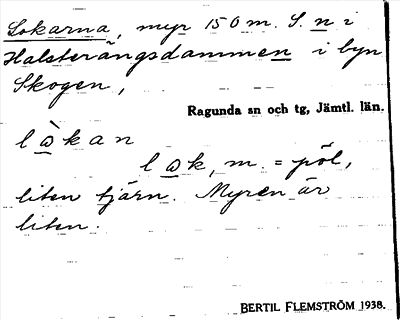 Lokarna, myr 150 m. S. n i
Halsterängsdammen i byn
Skogen,
Ragunda sn och tg, Jämtl. län.
lὼkan
lωk, m. = pöl,
liten tjärn. Myren är
liten.
BERTIL FLEMSTRÖM 1938.